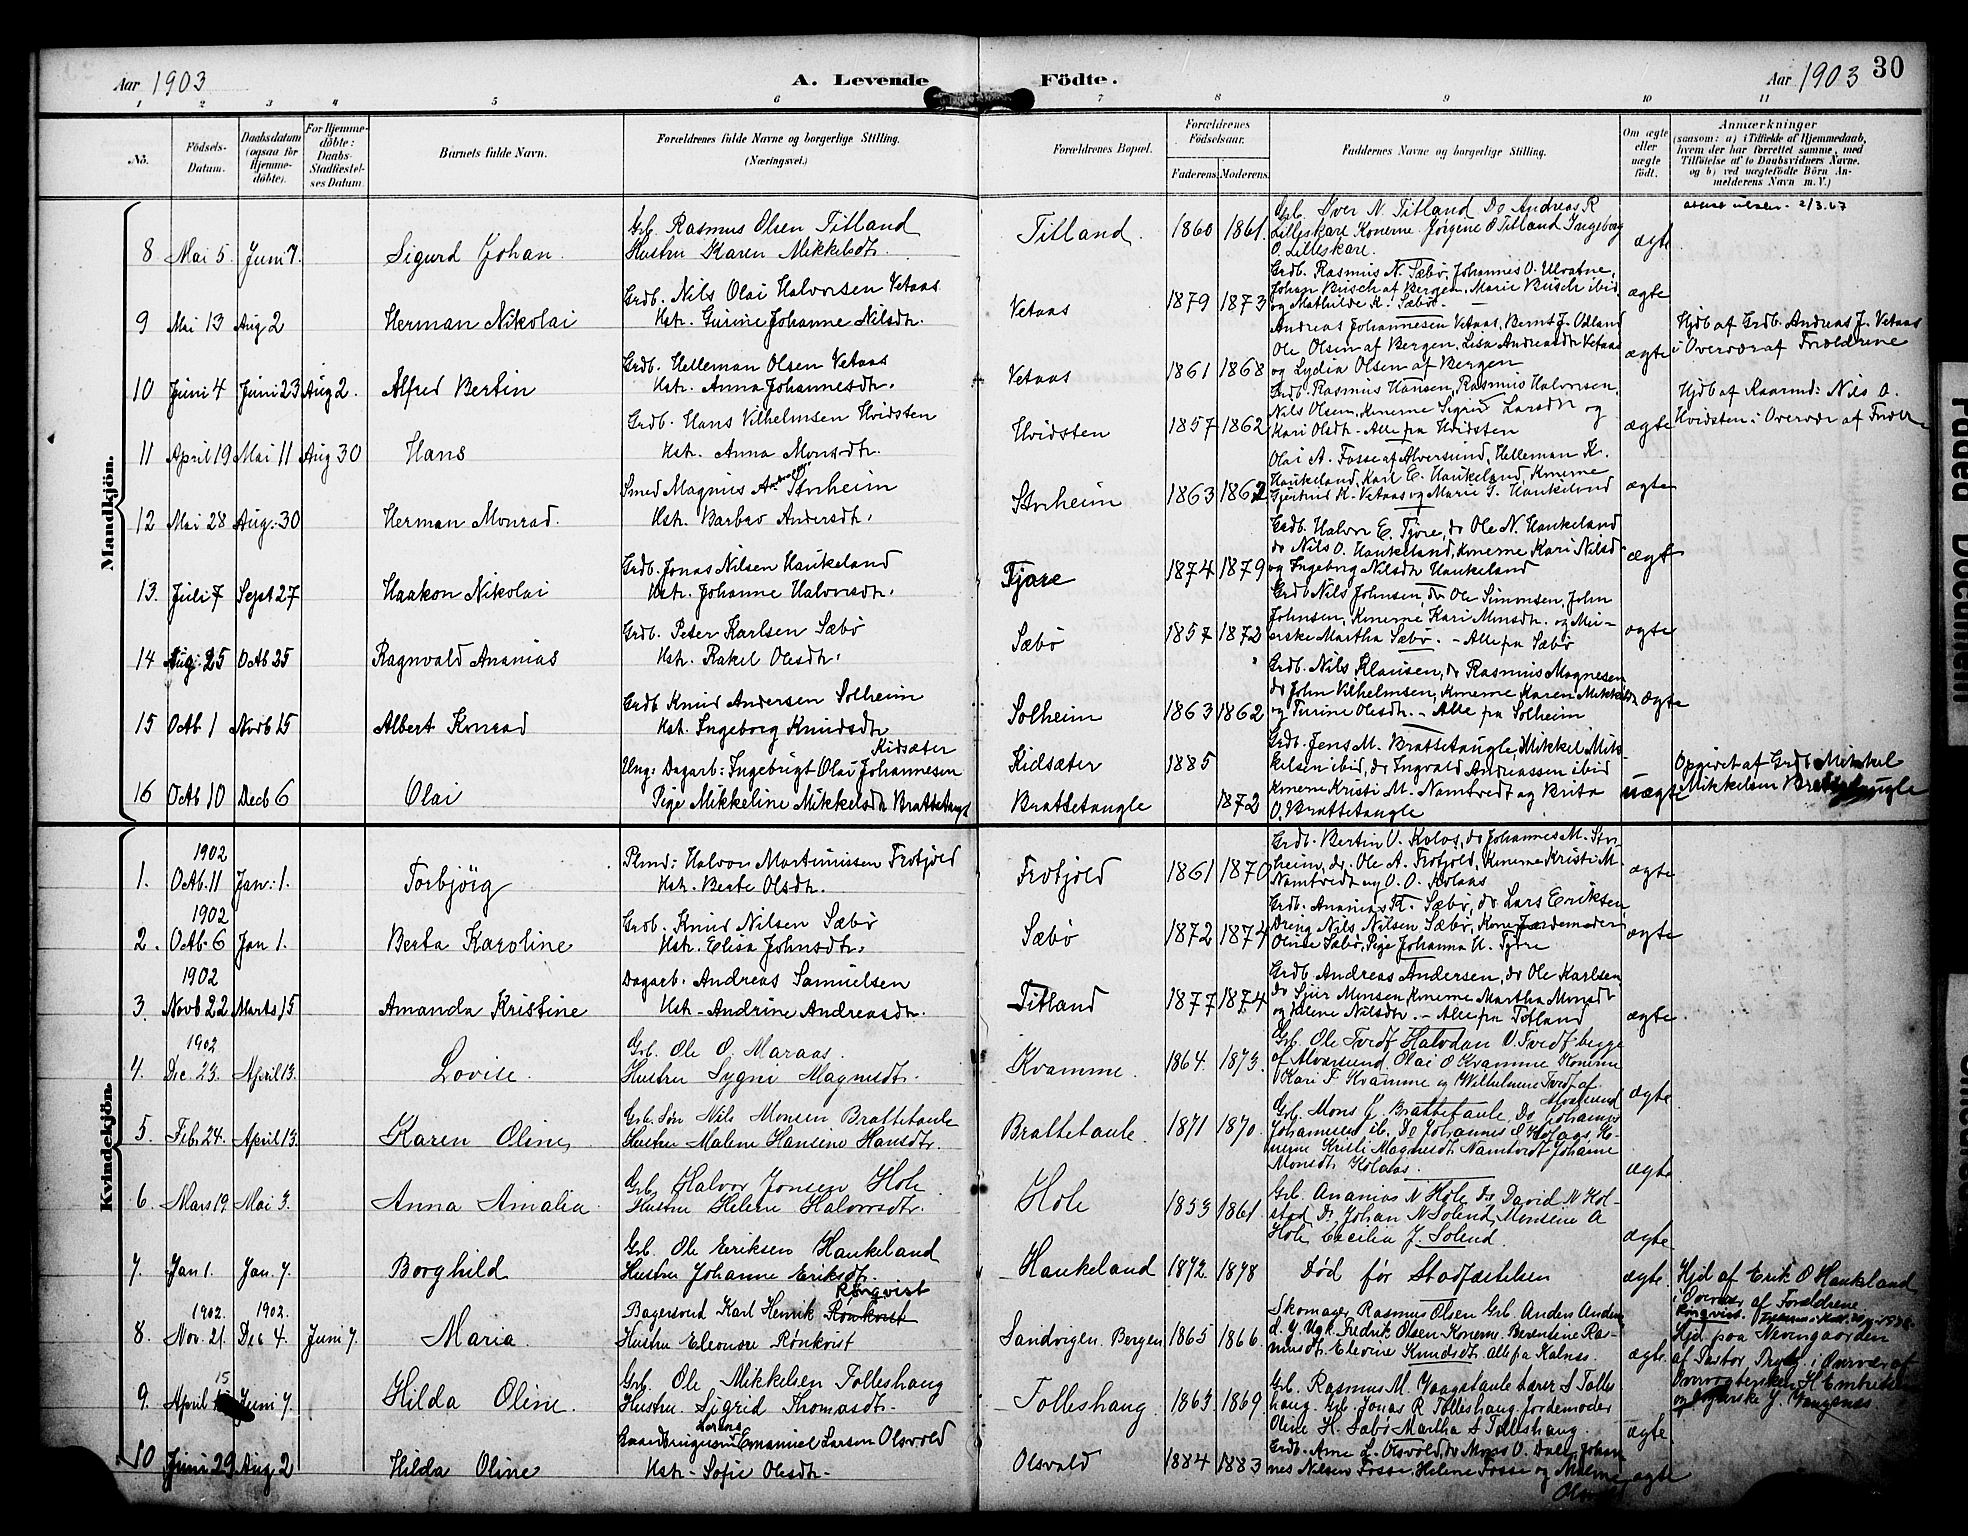 Aar 1903 A. Levende Födte. Aar 1903 30
1 2 3 4 5 6 7 8 9 10 11
No. Födsels-Datum. Daabsdatum (ogsaa for Hjemmedöbte). For Hjemmedöbte: Daabs-Stadfæstelses Datum. Barnets fulde Navn. Forældrenes fulde Navne og borgerlige Stilling. (Næringsvei.) Forældrenes Bopæl. Forældrenes Födselsaar. Faderens. Moderens. Faddernes Navne og borgerlige Stilling. Om ægte eller uægte födt. Anmærkninger (saasom: a) i Tilfælde af Hjemmedaab, hvem der har forrettet samme, med Tilföielse af to Daabsvidners Navne. og b) ved uægtefödte Börn Anmelderens Navn m. V.)
Mandkjön.
8 Mai 5. Juni 7. Sigurd Johan. Grb. Rasmus Olsen Titland
Hustru Karen Mikkelsdtr. Titland. 1860 1861. Grb. Iver N. Titland Do Andreas R
Lilleskare Konerne Jørgine O Titland Ingeborg
O. Lilleskare. ægte
9 Mai 13 Aug 2 Herman Nikolai Grdb. Nils Olai Halvorsen Vetaas
Hstr. Gurine Johanne Nilsdtr. Vetaas 1879 1873 Grdb. Rasmus N. Sæbø, Johannes O. Ulvatne,
Johan Busch af Bergen, Marie Busch ibid
og Mathilde K. Sæbø. ægte
10 Juni 4 Juni 23 Aug 2. Alfred Bertin Grdb. Helleman Olsen Vetaas
Hstr. Anna Johannesdtr. Vetaas 1861 1868 Andreas Johannesen Vetaas, Bernt J. Odland
Ole Olsen af Bergen, Lisa Andreasdtr Vetaas
og Lydia Olsen af Bergen ægte Hjdb af Grdb. Andreas J. Vetaas
i Overvær af Fræeldrene
11 April 19 Mai 11 Aug 30 Hans Grdb. Hans Vilhelmsen Hvidsten
Hstr. Anna Monsdtr. Hvidsten 1857 1862 Grdb. Rasmus Hansen, Rasmus Halvorsen,
Nils Olsen, Konerne Sigrid Larsdtr og
Kari Olsdtr - Alle fra Hvidsten ægte Hjdb af Nils O.
Hvidsten i Overvær af
12 Mai 28 Aug. 30 Herman Monrad. Smed Magnus A. Storheim
Hstr. Barbro Andersdtr. Storheim 1863 1862 Olai A. Fosse af Alversund, Helleman K.
Haukeland, Karl E. Haukeland, Konerne
Gjertrud H. Vetaas og Marie J. Haukeland ægte
13. Juli 7 Sept 27 Haakon Nikolai Grdb. Jonas Nilsen Haukeland
Hstr. Johanne Halvorsdtr. Fjære 1874 1879 Grdb. Halvor E. Tjore, do Ole N. Haukeland
do Nils O. Haukeland, Konerne Kari Nilsd
og Ingeborg Nilsdtr Haukeland ægte
14 Aug. 25 Octb 25 Ragnvald Ananias Grdb. Peter Karlsen Sæbø
Hstr. Rakel Olesdtr. Sæbø 1857 1872 Grdb Nils Johnsen, do Ole Simonsen, John
Johnsen, Konerne Kari Monsdtr. og Meierske Martha Sæbø. - Alle fra Sæbø ægte
15 Octb 1 Novb 15 Albert Konrad Grdb Knud Andersen Solheim
Hstr. Ingeborg Knudsdtr Solheim 1863 1862 Grdb. Nils Klausen, do Rasmus Magnesen
do John Vilhelmsen, Konerne Karen Mikkelsdtr
og Turine Olesdtr. - Alle fra Solheim ægte
16 Octb 10 Decb 6 Olai Ung: Dagarb: Ingebrigt Olai Johannesen Kidsæter
Pige Mikkeline Mikkelsdtr Brattetangl Kidsæter
Brattetangle 1885 1872 Grdb. Jens M. Brattetaugle, Mikkel Mikkelsen ibid, do Ingvald Andreassen ibid
Konerne Kristi M. Namtvedt og Brita
O. Brattetangle uægte Opgivet af Grdb Mikkel
Mikkelsen Brattetaugle
Kvindekjön.
1. 1902 Octb. 11 Jan. 1. Torbjörg Plmd: Halvor Martinussen Frotjold
Hstr. Berte Olsdtr. Frotjold 1861 1870 Grdb. Bertin O. Kolaas, do Johannes M. Storheim, do. Ole A. Frotjold, Konerne Kristi M.
Namtvedt og O. O. Kolaas ægte
2. 1902 Octb. 6 Jan 1. Berta Karoline Grdb. Knud Nilsen Sæbø
Hstr. Elisa Johnsdtr. Sæbø 1872 1874 Grdb. Ananias K. Sæbø, do Lars Eriksen
Dreng Nils Nilsen Sæbø, Kone Jordemoder
Oline Sæbø, Pige Johanna N. Tjore ægte
3. 1902 Novb 22 Marts 15 Amanda Kristine Dagarb. Andreas Samuelsen
Hstr - Andrine Andreasdtr. Titland 1877 1874 Grdb Andreas Andersen, do Ole Karlsen
do Sjur Monsen, Konerne Martha Monsdtr
og Malene Nilsdtr. - Alle fra Titland ægte
4. 1902 Dec. 23. April 13. Lovise Grb. Ole O. Maraas.
Hustru Sygni Magnesdtr. Kvamme. 1864. 1873. Grb. Ole Tvedt Halvdan O. Tvedt begge
af Alversund. Olai O Kvamme Konerne
Kari F Kvamme og Wilhelmine Tvedt af
Alversund ægte
5. Febr 24. April 13. Karen Oline, Grb. Søn Nils Monsen Brattetaule
Hustru Malene Hansine Hansdtr. Brattetaule. 1871 1870. Grb. Mons J. Brattetaule Do Johannes
Johannesen ib. Do Johannes O Kolaas, Konerne Kristi Magnesdtr Namtvedt Johanne
Monsdtr Kolaas. ægte
6. Mars 19. Mai 3. Anna Amalia. Grb Halvor Jonsen Hole
Hustru Helene Halvorsdtr. Hole 1853 1861. Grb. Ananias N Hole Do David N Holstad Do Johan N Solend, Monsine A
Hole Cecilia J. Solend. ægte
7. Jan 1. Jan. 7. Borghild Grb. Ole Eriksen Haukeland
Hustru Johanne Eriksdtr. Haukeland 1872 1878 Død før Stadfæstelsen ægte. Hjd af Erik O Haukeland
i Overvær af Forældrene
8. 1902. Nov. 21. 1902. Dec 4. Juni 7. Maria. Bagersvend Karl Henrik Rönkvist Rönqvist
Hustru Eleonore Rönkvist Sandvigen. Bergen 1865 1866. Skomager Rasmus Olsen Grb. Anders Anders
d. y Ugk. Fredrik Olsen Konerne. Berentine Rasmusdtr. Elevine Knudsdtr. alle fra Kalnes. ægte Hjd. paa Nevengaarden
af Pastor i Overvær af
9. April 15 Juni 7. Hilda Oline. Grb. Ole Mikkelsen Tolleshaug
Hustru Sigrid Thomasdtr. Tolleshaug. 1863 1869 Grb. Rasmus M. Lærer S Tolleshaug. Grb. Jonas R Tolleshaug. Jordemoder
Oline H. Sæbø Martha S Tolleshaug. ægte.
10 Juni 29 Aug 2 Hilda Oline Emanuel Larsen Olsvold
Hstr - Sofie Olesdtr - Olsvald 1884 1883 Grdb. Arne L. Olsvold, do Mons O. Dale, Johannes Nilsen Fosse, Helene Fosse og Malene
ægte
Faded Document